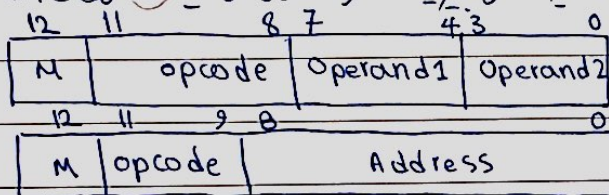 12 11 8 7 4 3 0
M opcode Operand1 Operand2
12 11 9 8 0
M opcode Address